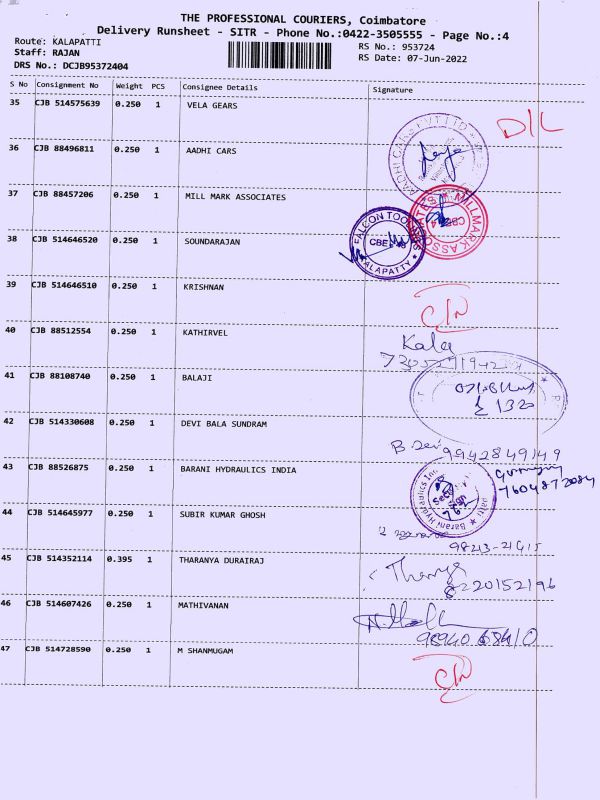 THE PROFESSIONAL COURIERS, Coimbatore
Delivery Runsheet - SITR - Phone No.:0422-3505555 - Page No.:4
Route: KALAPATTI
Staff: RAJAN
DRS No.: DCJB95372404
RS No.: 953724
RS Date: 07-Jun-2022
S No Consignment No Weight PCS Consignee Details Signature
35 CJB 514575639 0.250 1 VELA GEARS D/L
36 CJB 88496811 0.250 1 AADHI CARS
37 CJB 88457206 0.250 1 MILL MARK ASSOCIATES
38 CJB 514646520 0.250 1 SOUNDARAJAN
FALCON TOO
CBE
KALAPATTY
39 CJB 514646510 0.250 1 KRISHNAN
40 CJB 88512554 0.250 1 KATHIRVEL Kala
41 CJB 88108740 0.250 1 BALAJI
1320
42 CJB 514330608 0.250 1 DEVI BALA SUNDRAM
B Devi 9942849149
43 CJB 88526875 0.250 1 BARANI HYDRAULICS INDIA
7604872084
Barani Hydraulics
44 CJB 514645977 0.250 1 SUBIR KUMAR GHOSH
45 CJB 514352114 0.395 1 THARANYA DURAIRAJ
8220152196
46 CJB 514607426 0.250 1 MATHIVANAN
47 CJB 514728590 0.250 1 M SHANMUGAM